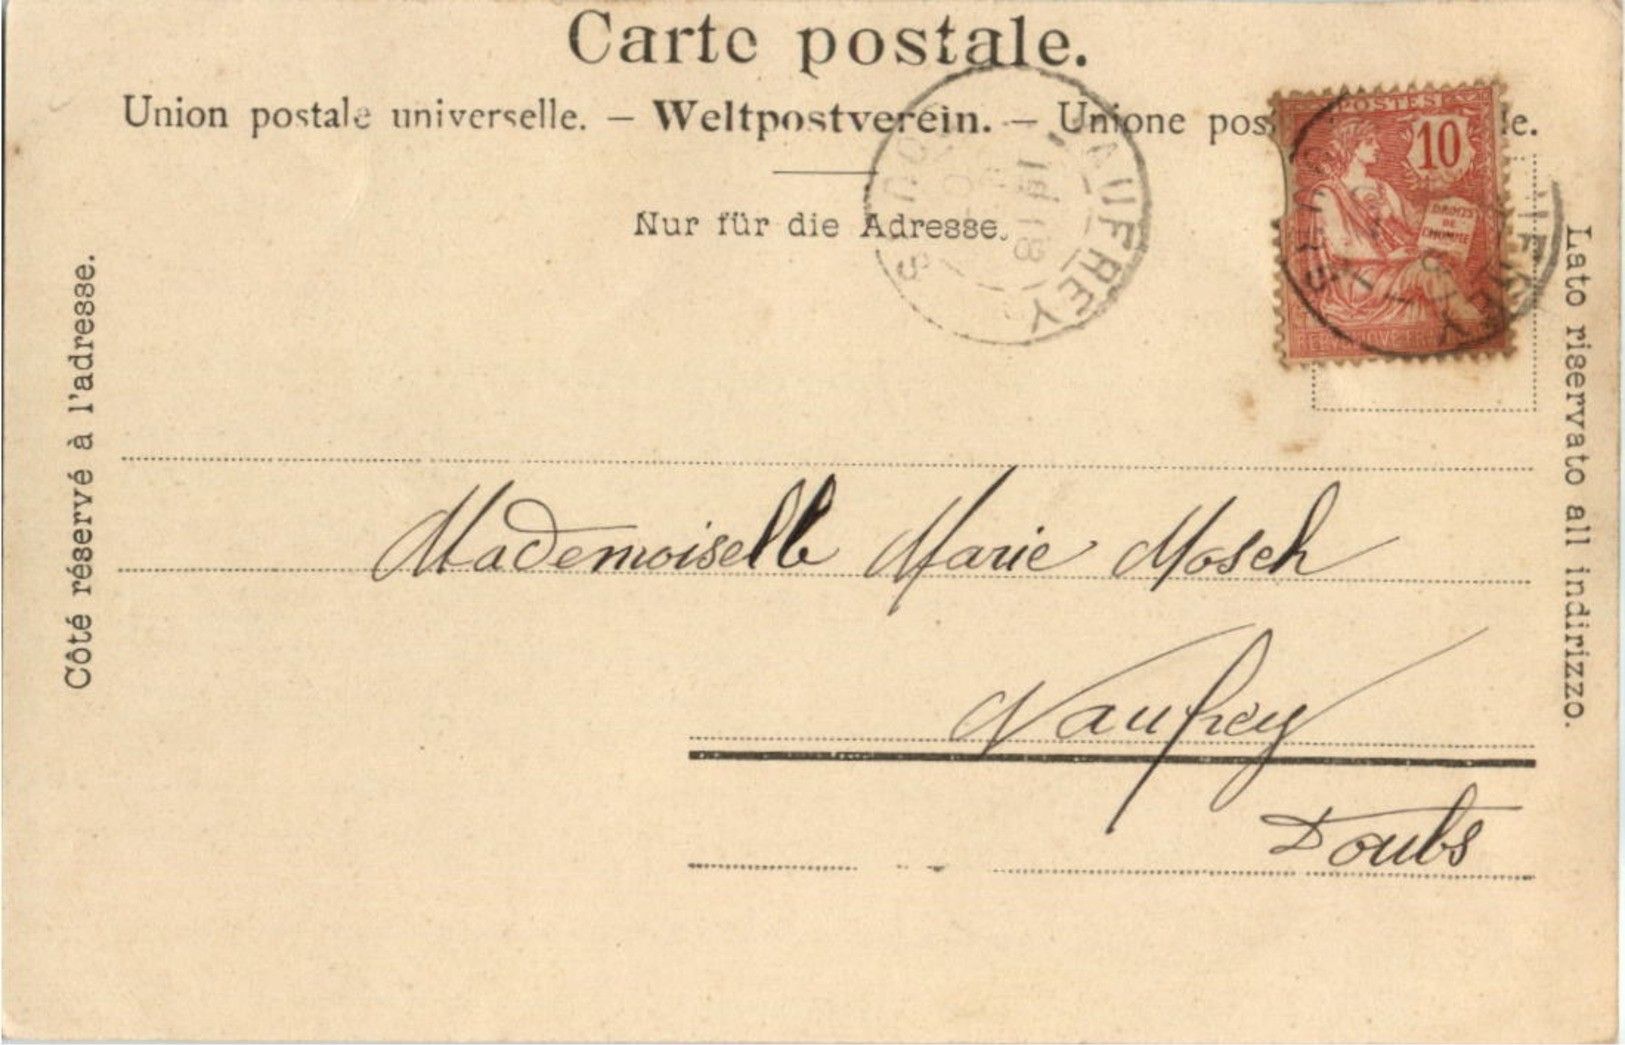 Carte postale.
Union postale universelle. — Weltpostverein. — Unione pos
Nur für die Adresse.
Côté réservé à l'adresse.
Lato riservato all indirizzo.
POSTES
10
DROITS
DE
L'HOMME
VAUFREY
DOUBS
Mademoiselle Marie Mosch
Vaufrey
Doubs